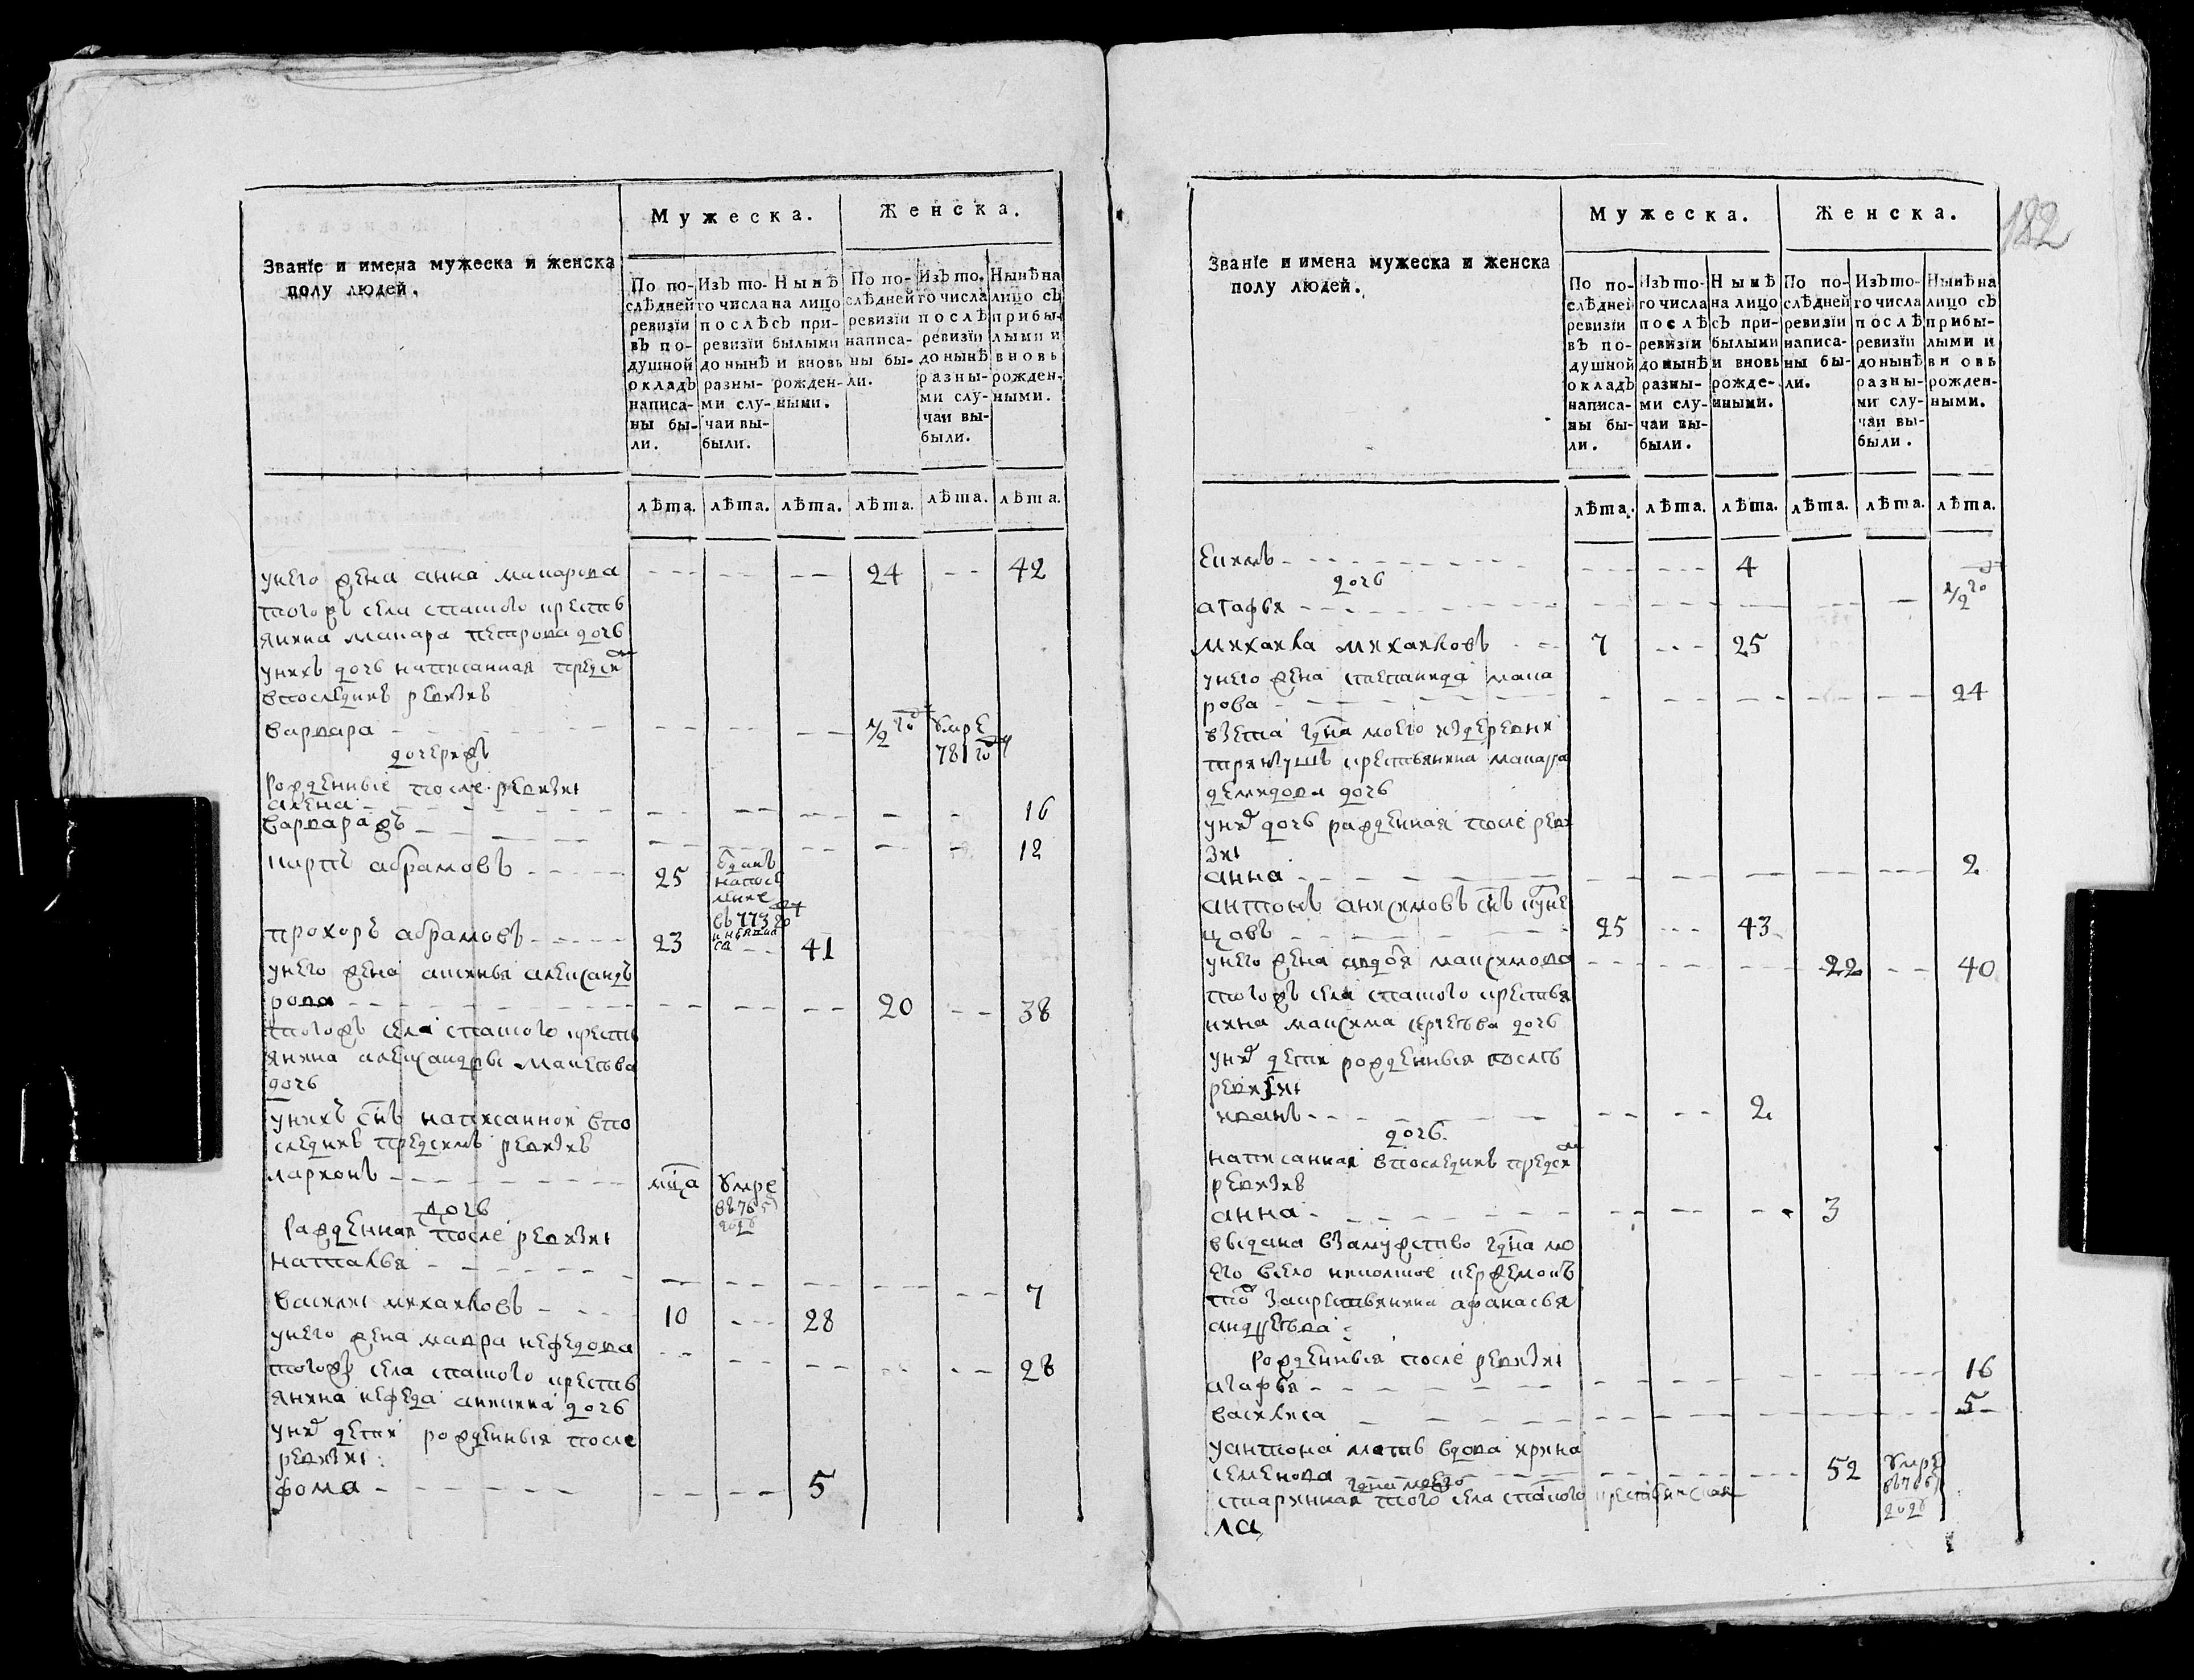 Званїе и имена мужеска и женска
полу людей.
Мужеска.
Женска.
По по-
слѣдней
ревизїи
въ по-
душной
окладъ
написа-
ны бы-
ли.
Изъ то-
го числа
послѣ
ревизїи
до нынѣ
разны-
ми слу-
чаи вы-
были.
Нынѣ
на лицо
съ при-
былыми
и вновь
рожден-
ными.
По по-
слѣдней
ревизїи
написа-
ны бы-
ли.
Изъ то-
го числа
послѣ
ревизїи
до нынѣ
разны-
ми слу-
чаи вы-
были.
Нынѣ на
лицо съ
прибы-
лыми и
вновь
рожден-
ными.
лѣта. лѣта. лѣта. лѣта. лѣта. лѣта.
унего жена анна макарова 24 42
тогожъ села крестъ
янина макара петрова дочь
унихъ дочь написанная предсим
впоследнѣ ревизиѣ
варвара 1/2 го умре
781 го
дочерижъ
рожденные после ревизи
алена 16
варвараж 12
карпъ абрамовъ 25
въ 773
прохоръ абрамовъ 23 41
унего жена аксинья александъ
рова 20 38
тогожъ села крестъ
янина александры макеѣва
дочь
унихъ снъ написанной впо
следнѣ предсимъ ревизиѣ
ларионъ мца умре
въ 765
годѣ
дочь
Рожденная после ревизи
наталья 7
василеи михаиловъ 10 28
унего жена мавра нефедова 28
тогожъ села крестъ
янина нефеда аникина дочь
уних дети рожденныя после
ревизи:
фома 5
182
Званїе и имена мужеска и женска
полу людей.
Мужеска.
Женска.
По по-
слѣдней
ревизїи
въ по-
душной
окладъ
написа-
ны бы-
ли.
Изъ то-
го числа
послѣ
ревизїи
до нынѣ
разны-
ми слу-
чаи вы-
были.
Нынѣ
на лицо
съ при-
былыми
и вновь
рожде-
нными.
По по-
слѣдней
ревизїи
написа-
ны бы-
ли.
Изъ то-
го числа
послѣ
ревизїи
до нынѣ
разны-
ми слу-
чаи вы-
были.
Нынѣ на
лицо съ
прибы-
лыми и
вновь
рожден-
ными.
лѣта. лѣта. лѣта. лѣта. лѣта. лѣта.
Екимъ 4
дочь
агафья 1/2 го
михаила михаиловъ 7 25
унего жена степанида мака
рова 24
взета гдна моего издеревни
крестьянина макара
демидова дочь
уних дочь рожденная после реви
зи
анна 2
антонъ анисимовъ снъ
цовъ 25 43
унего жена авдоя максимова 22 40
тогожъ села крестья
нина максима сергеѣва дочь
уних дети рожденныя послѣ
ревизи
иванъ 2
дочь
написанная впоследнѣ предсим
ревизиѣ
анна 3
выдана взамужство гдна мо
его всело
закрестьянина афанасья
андреѣва:
Рожденныя после ревизи
агафья 16
василиса 5
уантона мать вдова ирина
семенова 52 умре
въ 766
годѣ
гдна моего
старинная того села крестьянская
ла